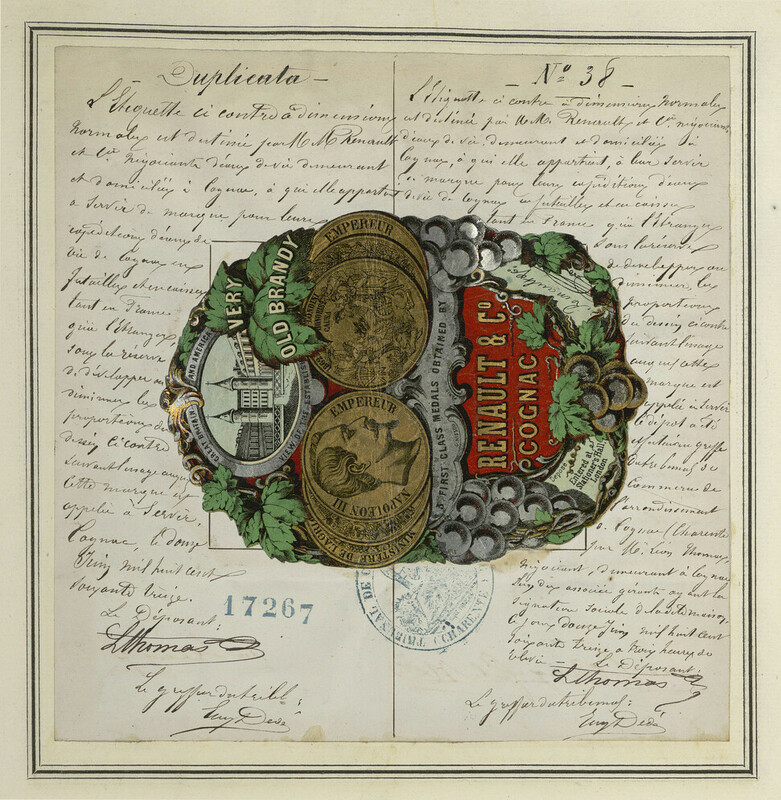 Duplicata
L'Etiquette ci contre à dimensions
normales est destinée par M.M. Renault
et Cie. Négociants d'eaux de vie demeurant
et domiciliés à Cognac, à qui elle appartient
à servir de marque pour leurs
expéditions d'eaux de
vie de Cognac en
futailles et en caisses
tant en France
qu'à l'étranger
sous la réserve
de développer ou
diminuer les
proportions du
dessin ci contre
suivant l'usage auquel
cette marque est
appelée à servir.
Cognac, le douze
Juin mil huit cent
soixante treize.
Le Déposant:
LThomas
17267
Le greffier du tribl:
No 38
L'Etiquette ci contre à dimensions normales
est destinée par M.M. Renault et Cie. négociants
d'eaux de vie, demeurant et domiciliés à
Cognac, à qui elle appartient, à leur servir
de marque pour leurs expéditions d'eaux
de vie de Cognac en futailles et en caisses
tant en France qu'à l'étranger
sous la réserve
de développer ou
diminuer, les
proportions
du dessin ci contre
suivant l'usage
auquel cette
marque est
appelée à servir
Le dépôt a été
du tribunal de
Commerce de
l'arrondissement
de Cognac (Charente
par M. Léon Thomas
négociant demeurant à Cognac
signature sociale de la dite maison,
le jour douze Juin mil huit cent
soixante treize à trois heures du
Le Déposant:
LThomas
Le greffier du tribunal:
VERY
OLD BRANDY
GREAT BRITAIN AND AMERICA
EMPEREUR
EMPEREUR
NAPOLEON III
MINISTERE DE L'AGRIC
5 FIRST CLASS MEDALS OBTAINED BY
RENAULT & Co
COGNAC
Entered at
Stationer's Hall
London
TRIBUNAL DE C
CHARENTE